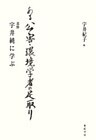 宇井紀子 編
ある公害・環境学者の足取り
追悼 宇井純に学ぶ